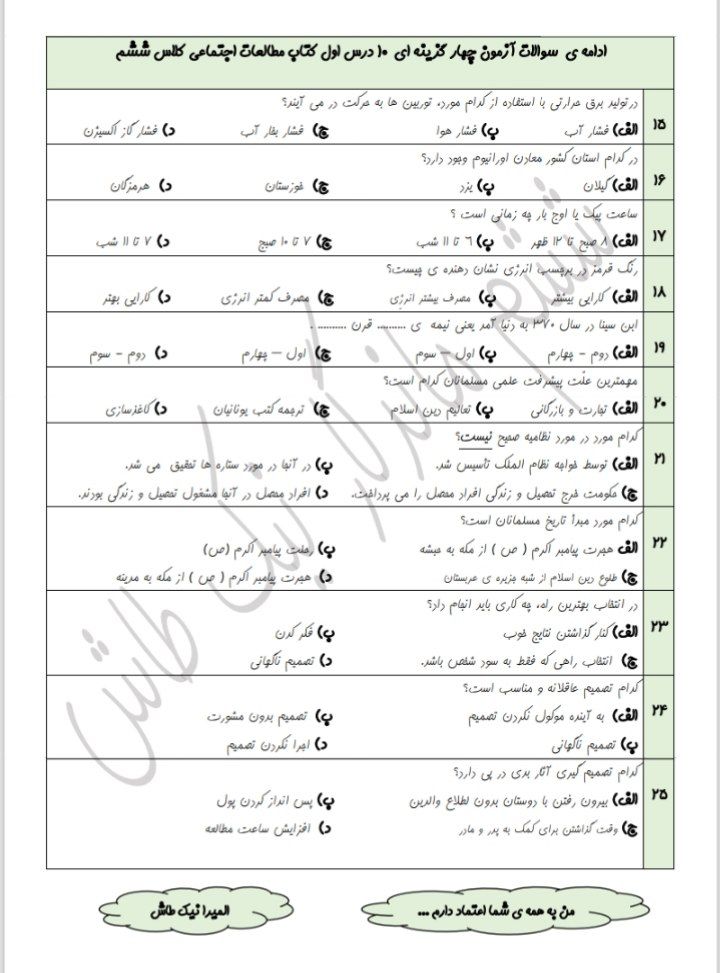 ادامه ی سوالات آزمون چهار گزینه ای ۱۰ درس اول کتاب مطالعات اجتماعی کلاس ششم
۱۵
در تولید برق حرارتی با استفاده از کدام مورد، توربین ها به حرکت در می آیند؟
الف) فشار آب ب) فشار هوا ج) فشار بخار آب د) فشار گاز اکسیژن
۱۶
در کدام استان کشور معادن اورانیوم وجود دارد؟
الف) گیلان ب) یزد ج) خوزستان د) هرمزگان
۱۷
ساعت پیک یا اوج بار چه زمانی است ؟
الف) ۸ صبح تا ۱۲ ظهر ب) ۶ تا ۱۱ شب ج) ۷ تا ۱۰ صبح د) ۷ تا ۱۱ شب
۱۸
رنگ قرمز در برچسب انرژی نشان دهنده ی چیست؟
الف) کارایی بیشتر ب) مصرف بیشتر انرژی ج) مصرف کمتر انرژی د) کارایی بهتر
۱۹
ابن سینا در سال ۳۷۰ به دنیا آمد یعنی نیمه ی .......... قرن .......... .
الف) دوم - چهارم ب) اول – سوم ج) اول – چهارم د) دوم - سوم
۲۰
مهمترین علّت پیشرفت علمی مسلمانان کدام است؟
الف) تجارت و بازرگانی ب) تعالیم دین اسلام ج) ترجمه کتب یونانیان د) کاغذسازی
۲۱
کدام مورد در مورد نظامیه صحیح نیست؟
الف) توسط خواجه نظام الملک تأسیس شد. ب) در آنها در مورد ستاره ها تحقیق می شد.
ج) حکومت خرج تحصیل و زندگی افراد محصل را می پرداخت. د) افراد محصل در آنها مشغول تحصیل و زندگی بودند.
۲۲
کدام مورد مبدأ تاریخ مسلمانان است؟
الف هجرت پیامبر اکرم ( ص ) از مکه به حبشه ب) رحلت پیامبر اکرم (ص)
ج) طلوع دین اسلام از شبه جزیره ی عربستان د) هجرت پیامبر اکرم ( ص ) از مکه به مدینه
۲۳
در انتخاب بهترین راه، چه کاری باید انجام داد؟
الف) کنار گذاشتن نتایج خوب ب) فکر کردن
ج) انتخاب راهی که فقط به سود شخص باشد. د) تصمیم ناگهانی
۲۴
کدام تصمیم عاقلانه و مناسب است؟
الف) به آینده موکول نکردن تصمیم ب) تصمیم بدون مشورت
ب) تصمیم ناگهانی د) اجرا نکردن تصمیم
۲۵
کدام تصمیم گیری آثار بدی در پی دارد؟
الف) بیرون رفتن با دوستان بدون اطلاع والدین ب) پس انداز کردن پول
ج) وقت گذاشتن برای کمک به پدر و مادر د) افزایش ساعت مطالعه
من به همه ی شما اعتماد دارم ...
المیرا نیک طاش